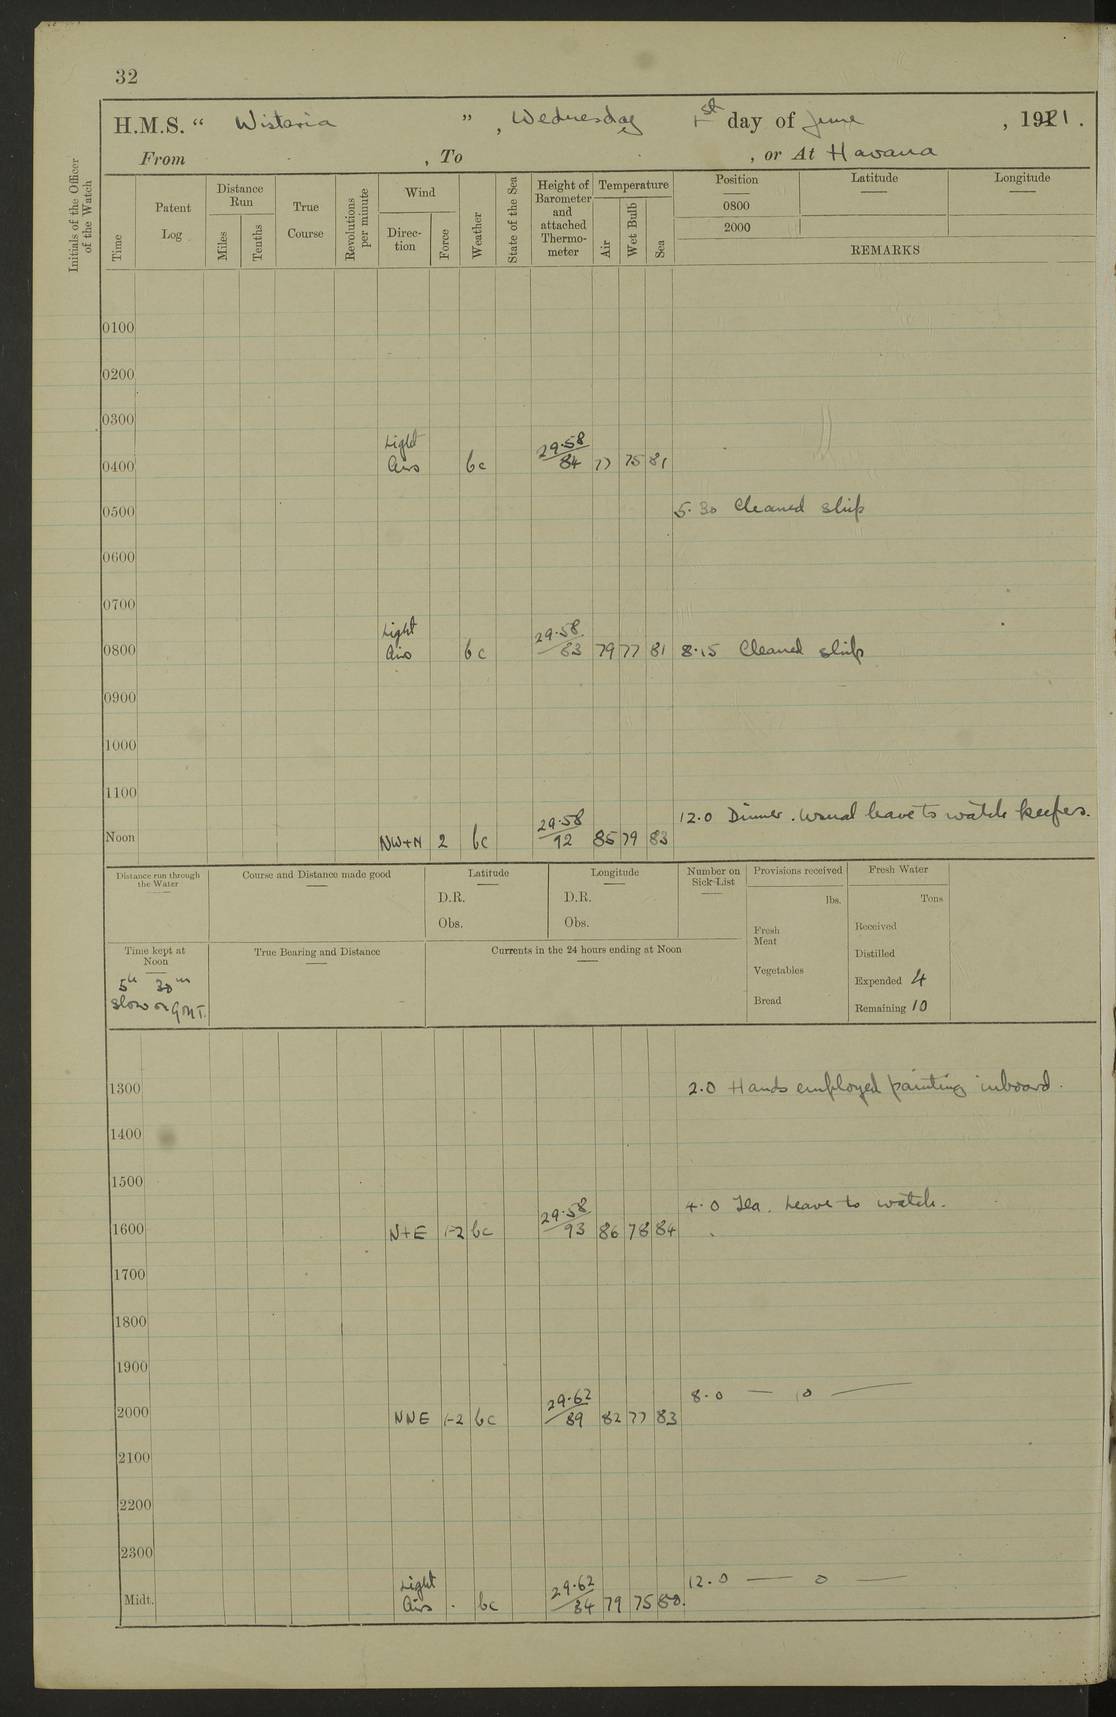 32
H.M.S. “ Wistaria ” , Wednesday 1st day of June , 1921.
From , To , or At Havana
Initials of the Officer of the Watch
Time
Patent Log
Distance Run
Miles
Tenths
True Course
Revolutions per minute
Wind
Direction
Force
Weather
State of the Sea
Height of Barometer and attached Thermometer
Temperature
Air
Wet Bulb
Sea
Position Latitude Longitude
0800
2000
REMARKS
0100
0200
0300
0400 Light Airs bc 29·58/84 77 75 81
0500 5.30 Cleaned ship
0600
0700
0800 Light Airs bc 29·58/83 79 77 81 8.15 Cleaned ship
0900
1000
1100
12.0 Dinner. Usual leave to watch keepers.
Noon NW+N 2 bc 29·58/92 85 79 83
Distance run through the Water
Course and Distance made good
Latitude
D.R.
Obs.
Longitude
D.R.
Obs.
Number on Sick List
Provisions received
lbs.
Fresh Meat
Vegetables
Bread
Fresh Water
Tons
Received
Distilled
Expended 4
Remaining 10
Time kept at Noon
5h 30m
slow on GMT.
True Bearing and Distance
Currents in the 24 hours ending at Noon
1300 2.0 Hands employed painting inboard.
1400
1500
4.0 Tea. Leave to watch.
1600 N+E 1-2 bc 29·58/93 86 78 84
1700
1800
1900
8.0 — 0 —
2000 NNE 1-2 bc 29·62/89 82 77 83
2100
2200
2300
12.0 — 0 —
Midt. Light Airs . bc 29·62/84 79 75 80.